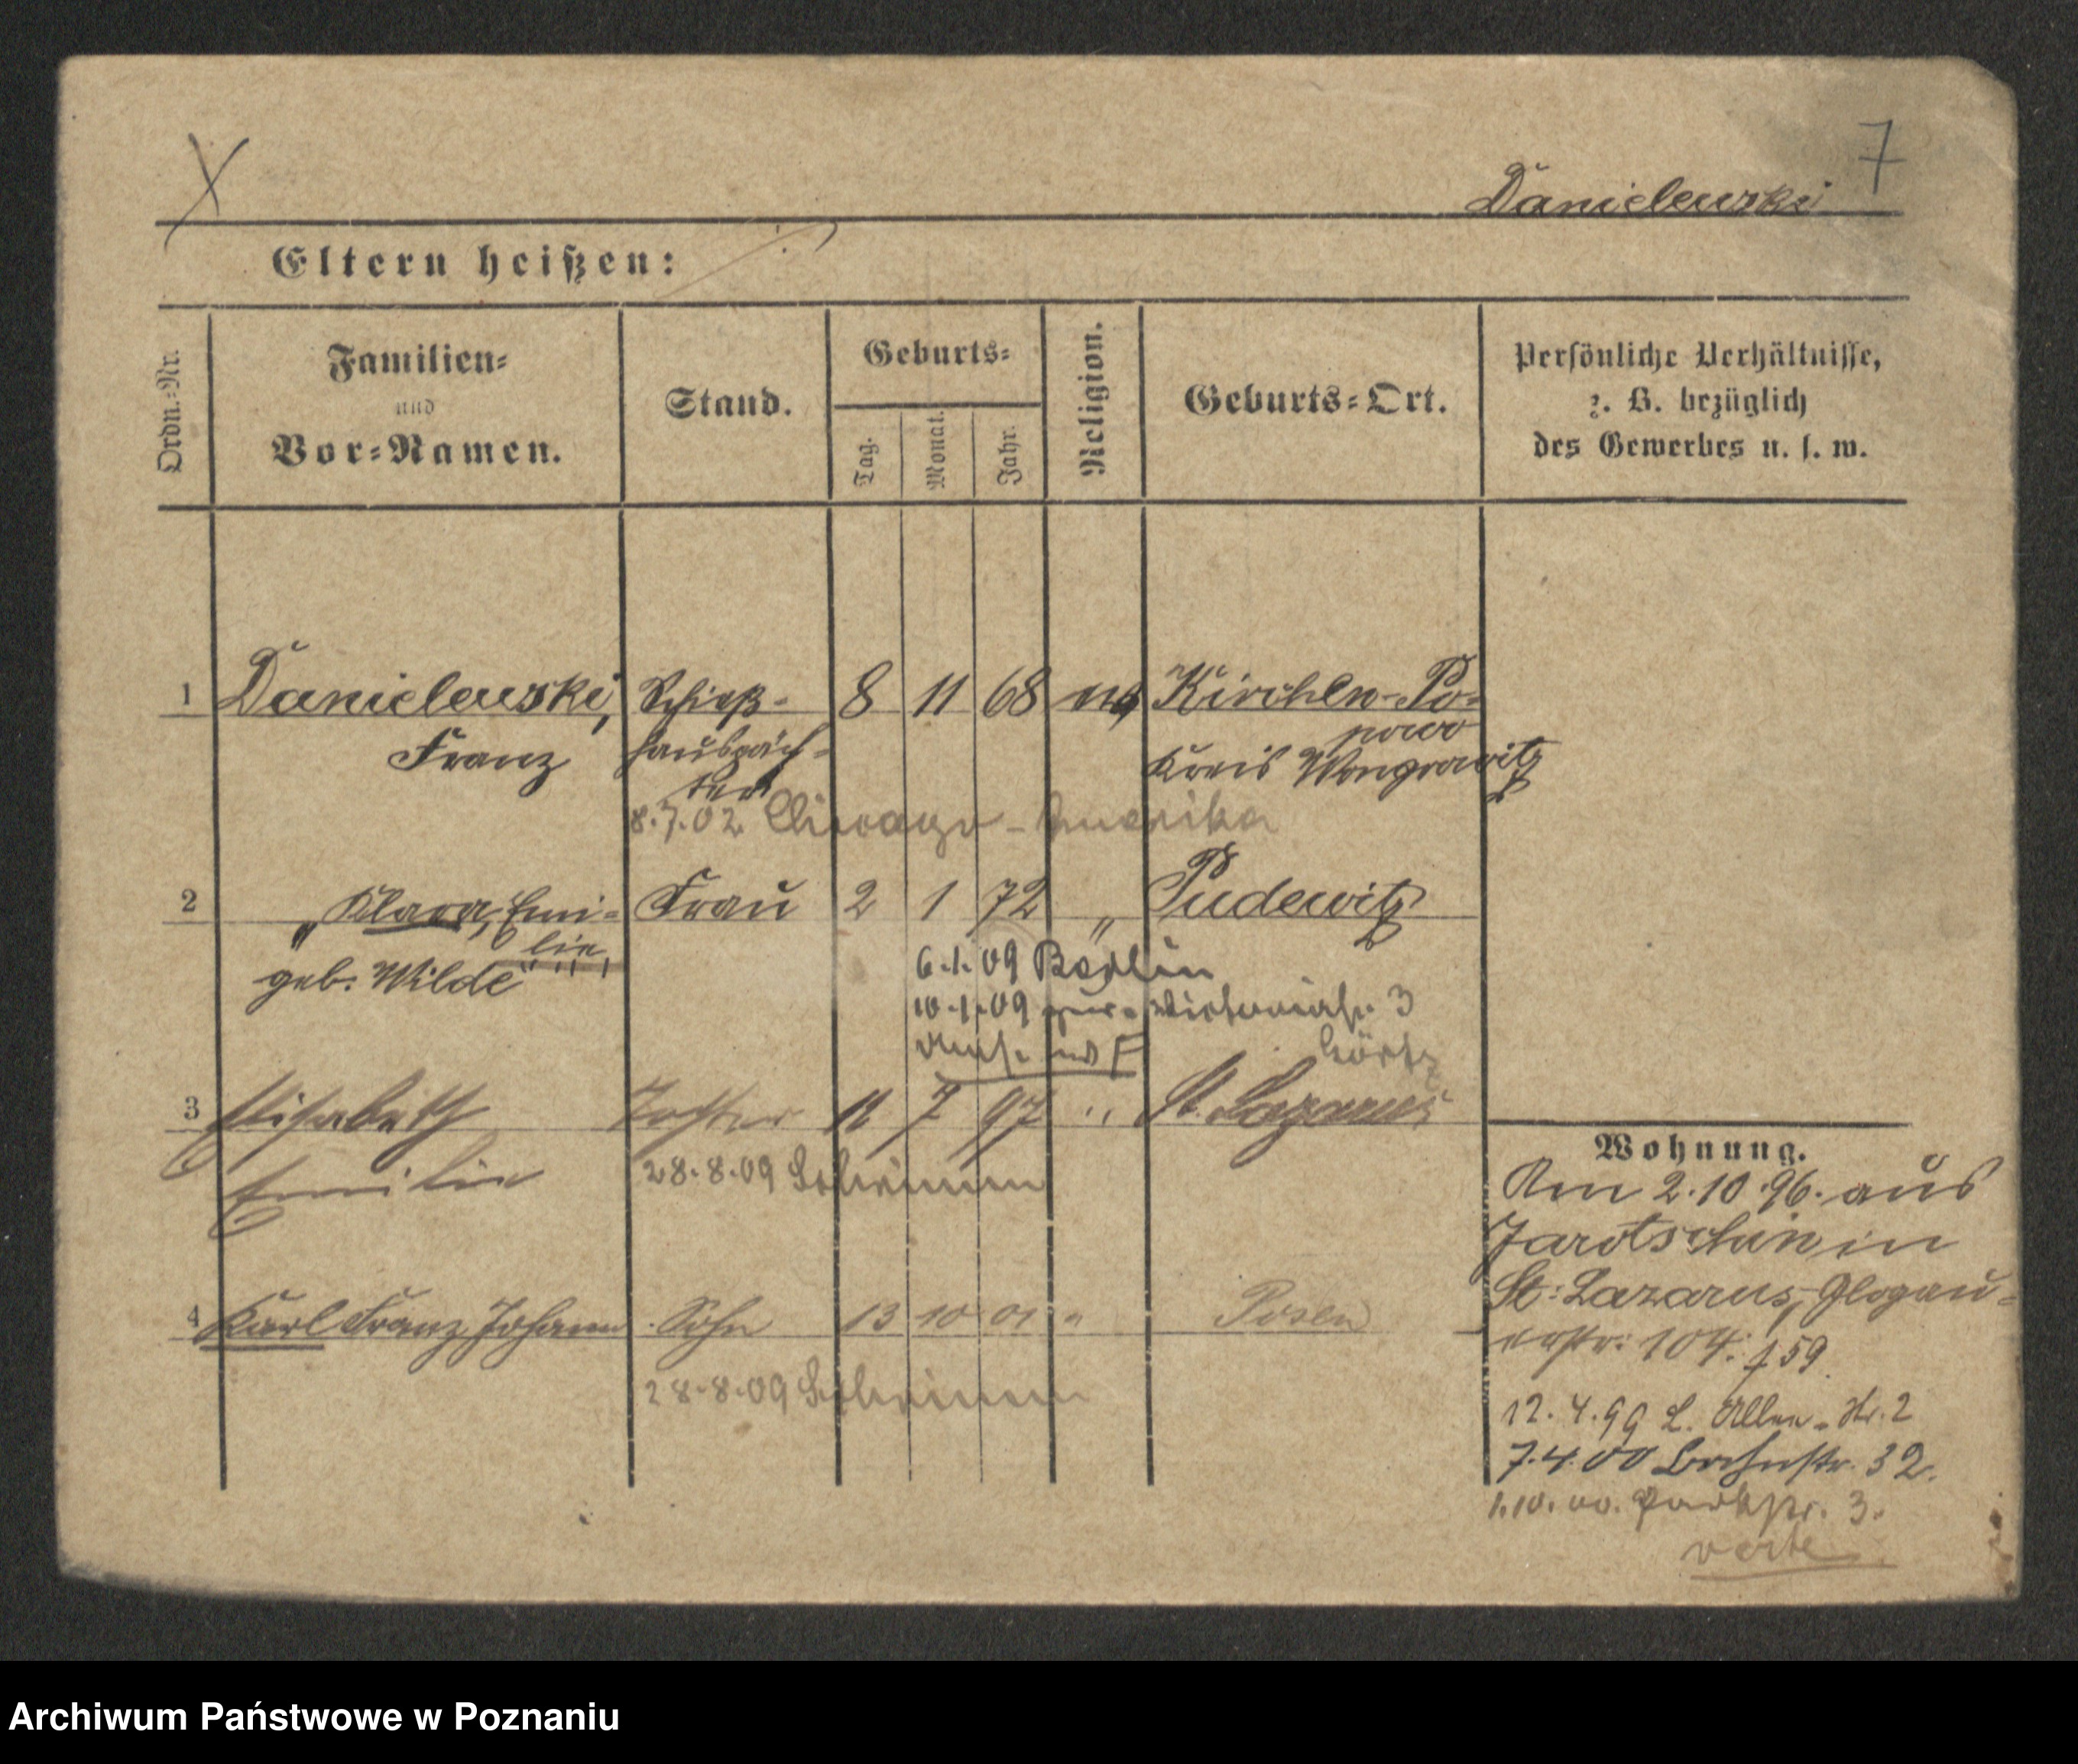 7
Danielewski
Eltern heißen:
Ordn.-Nr.
Familien-
und
Vor-Namen.
Stand.
Geburts-
Tag.
Monat.
Jahr.
Religion.
Geburts-Ort.
Persönliche Verhältnisse,
z. B. bezüglich
des Gewerbes u. s. w.
1 Danielewski, Schieß- 8 11 68 Kirchen-Po-
Franz hauspäch- powo
ter Kreis Wongrowitz
8.7.02 Chicago - Amerika
2 " Klara, Emi- Frau 2 1 72 " Pudewitz
lie,
geb. Wilde
6.1.09 Berlin
10.1.09 3
3 Elisabeth Tochter 11 7 97 " St. Lazarus
Emilie 28.8.09 Schrimm
4 Karl Franz Johann Sohn 13 10 01 " Posen
28.8.09 Schrimm
Wohnung.
Am 2.10.96. aus
Jarotschin in
St. Lazarus, Glogau-
erstr. 104. f 59.
12.4.99 L. Allee-Str. 2
7.4.00 Bahnstr. 32.
1.10.00. Parkstr. 3.
verte
Archiwum Państwowe w Poznaniu